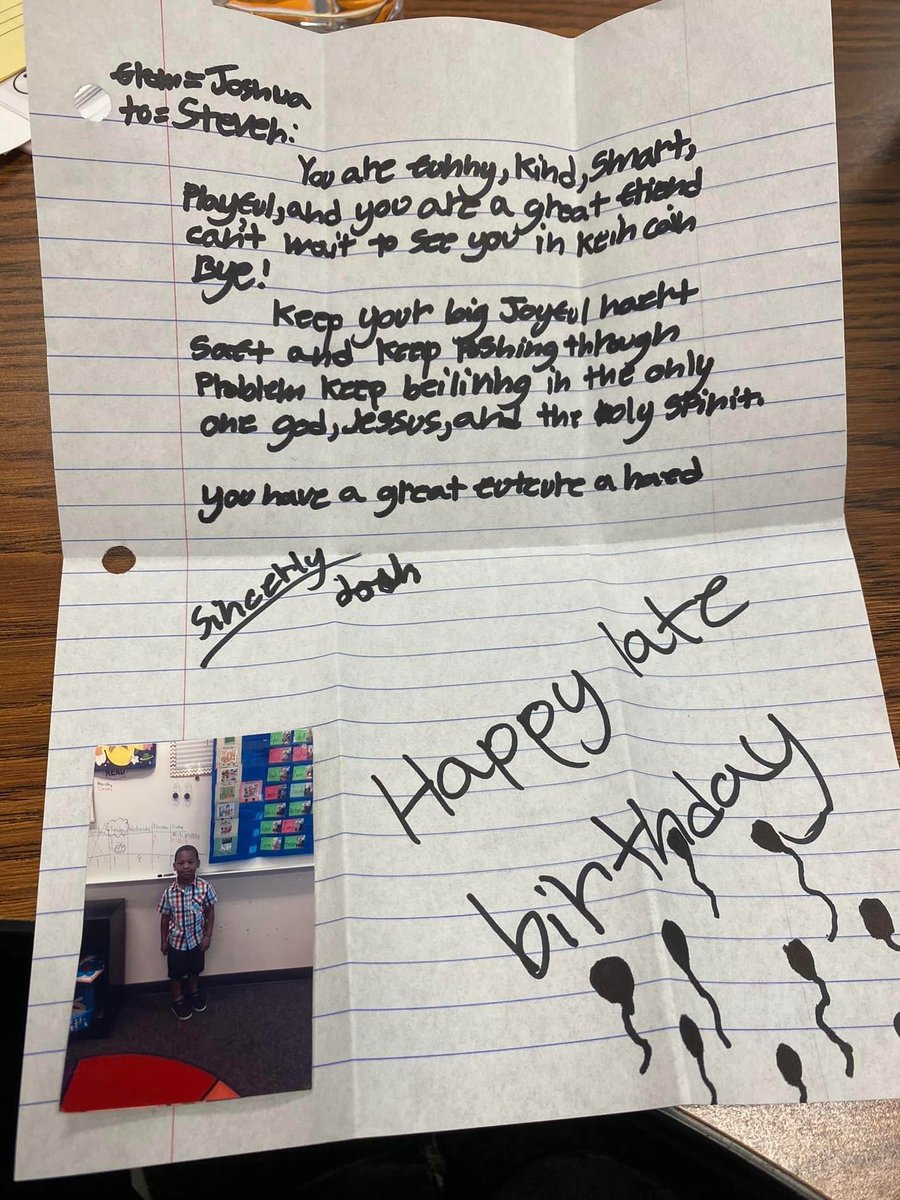 from= Joshua
to= Steven:
You are funny, kind, smart,
Playful, and you are a great friend
can't wait to see you in
Bye!
Keep your big Joyful haert
Saft and keep Poshing through
Problem keep beilining in the only
one god, Jessus, and the holy spirit.
you have a great futcure a haed
Sincerly
Josh
Happy late
birthday
READ